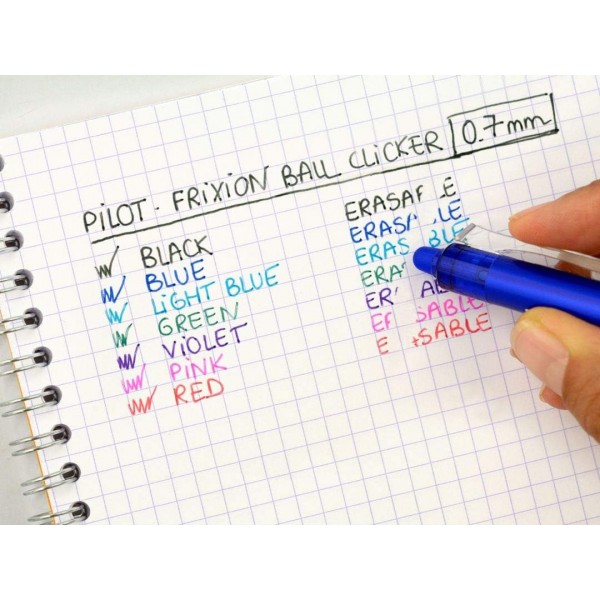 PiLOT - FRiXiON BALL CLiCKER 0.7mm
BLACK
BLUE
LiGHT BLUE
GREEN
ViOLET
PiNK
RED
ERASA LE
ERASA LE
ERAS BLE
ERA
ER AB
ER SABLE
E SABLE